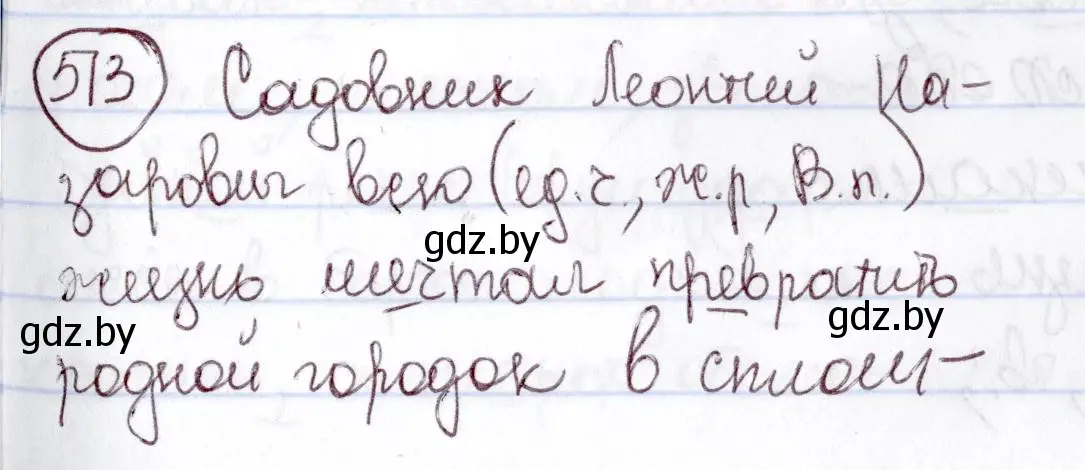 573 Садовник Леонтий На-
зарович всю (ед.ч., ж.р., В.п.)
gdz.by
жизнь мечтал превратить
gdz.by gdz.by
родной городок в сплош-